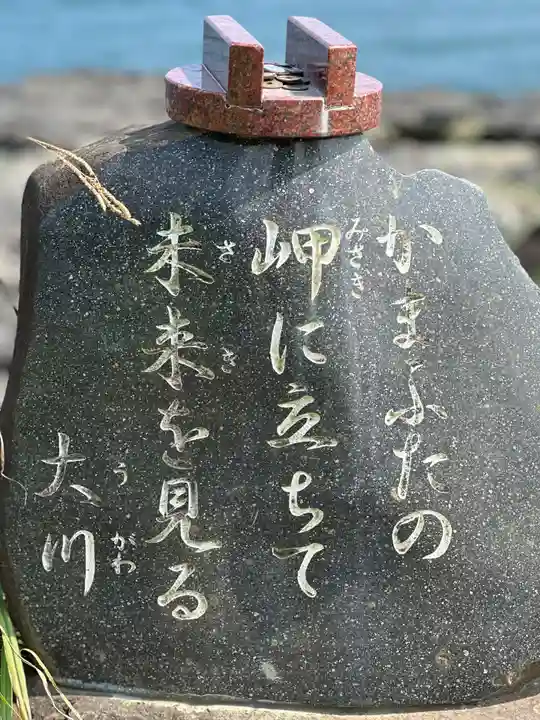 かまふたの
岬に立ちて
みさき
未来を見る
さき
大川
うがわ